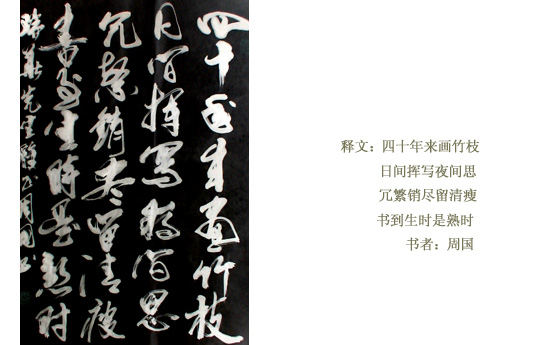 四十年来画竹枝
日间挥写夜间思
冗繁销尽留清瘦
书到生时是熟时
释文：四十年来画竹枝
日间挥写夜间思
冗繁销尽留清瘦
书到生时是熟时
书者：周国